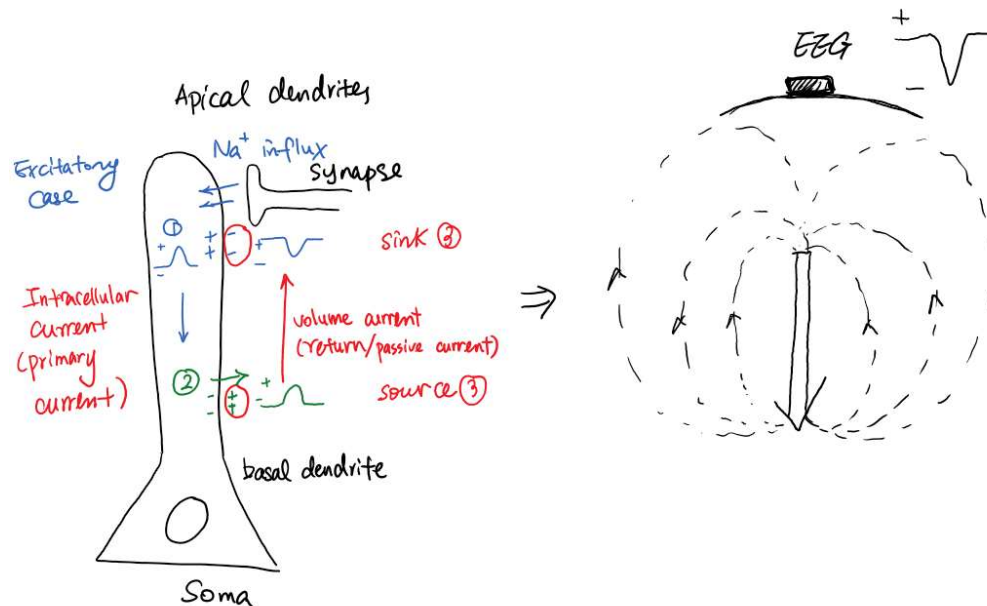 EEG
+
−
Apical dendrites
Excitatory
case
Na⁺ influx
synapse
①
+
-
+ -
+ -
+
-
sink ③
Intracellular
current
(primary
current)
volume current
(return/passive current)
⇒
②
- +
- +
+
-
source ③
basal dendrite
Soma